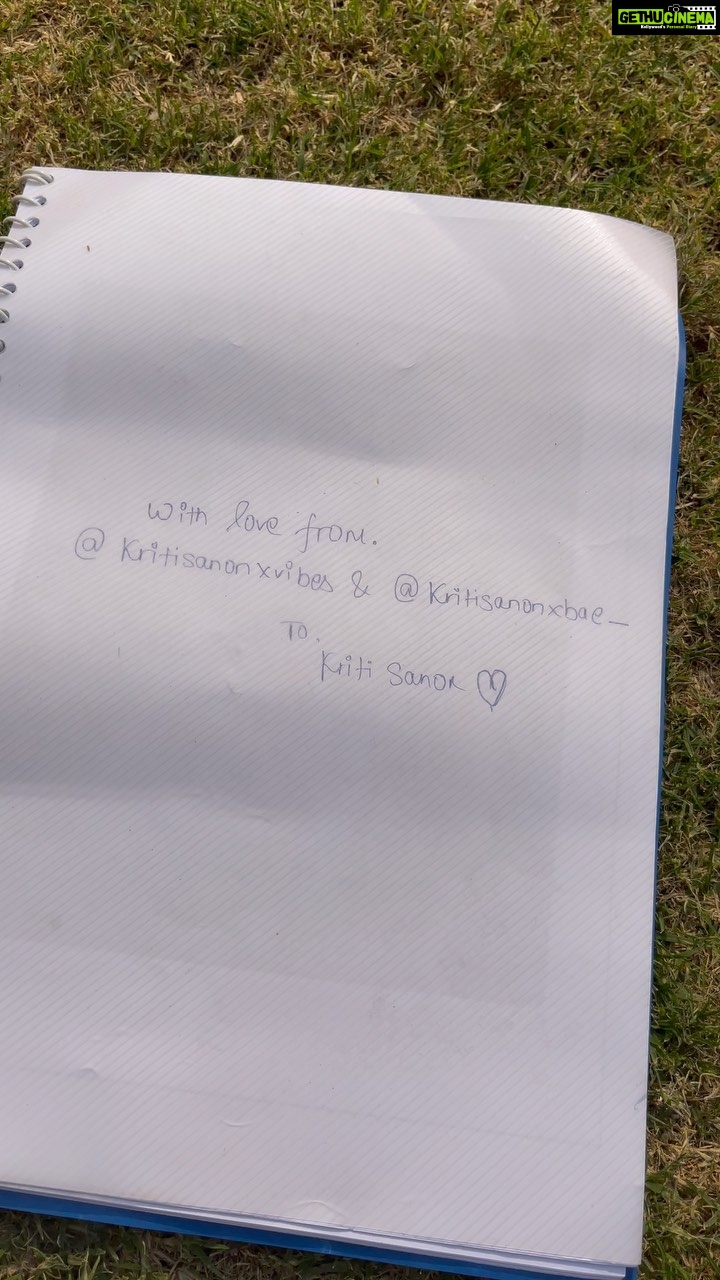 GETHU CINEMA
Kollywood's Personal Diary
With love from.
@ Kritisanonxvibes & @Kritisanonxbae_
To.
Kriti Sanon ♡